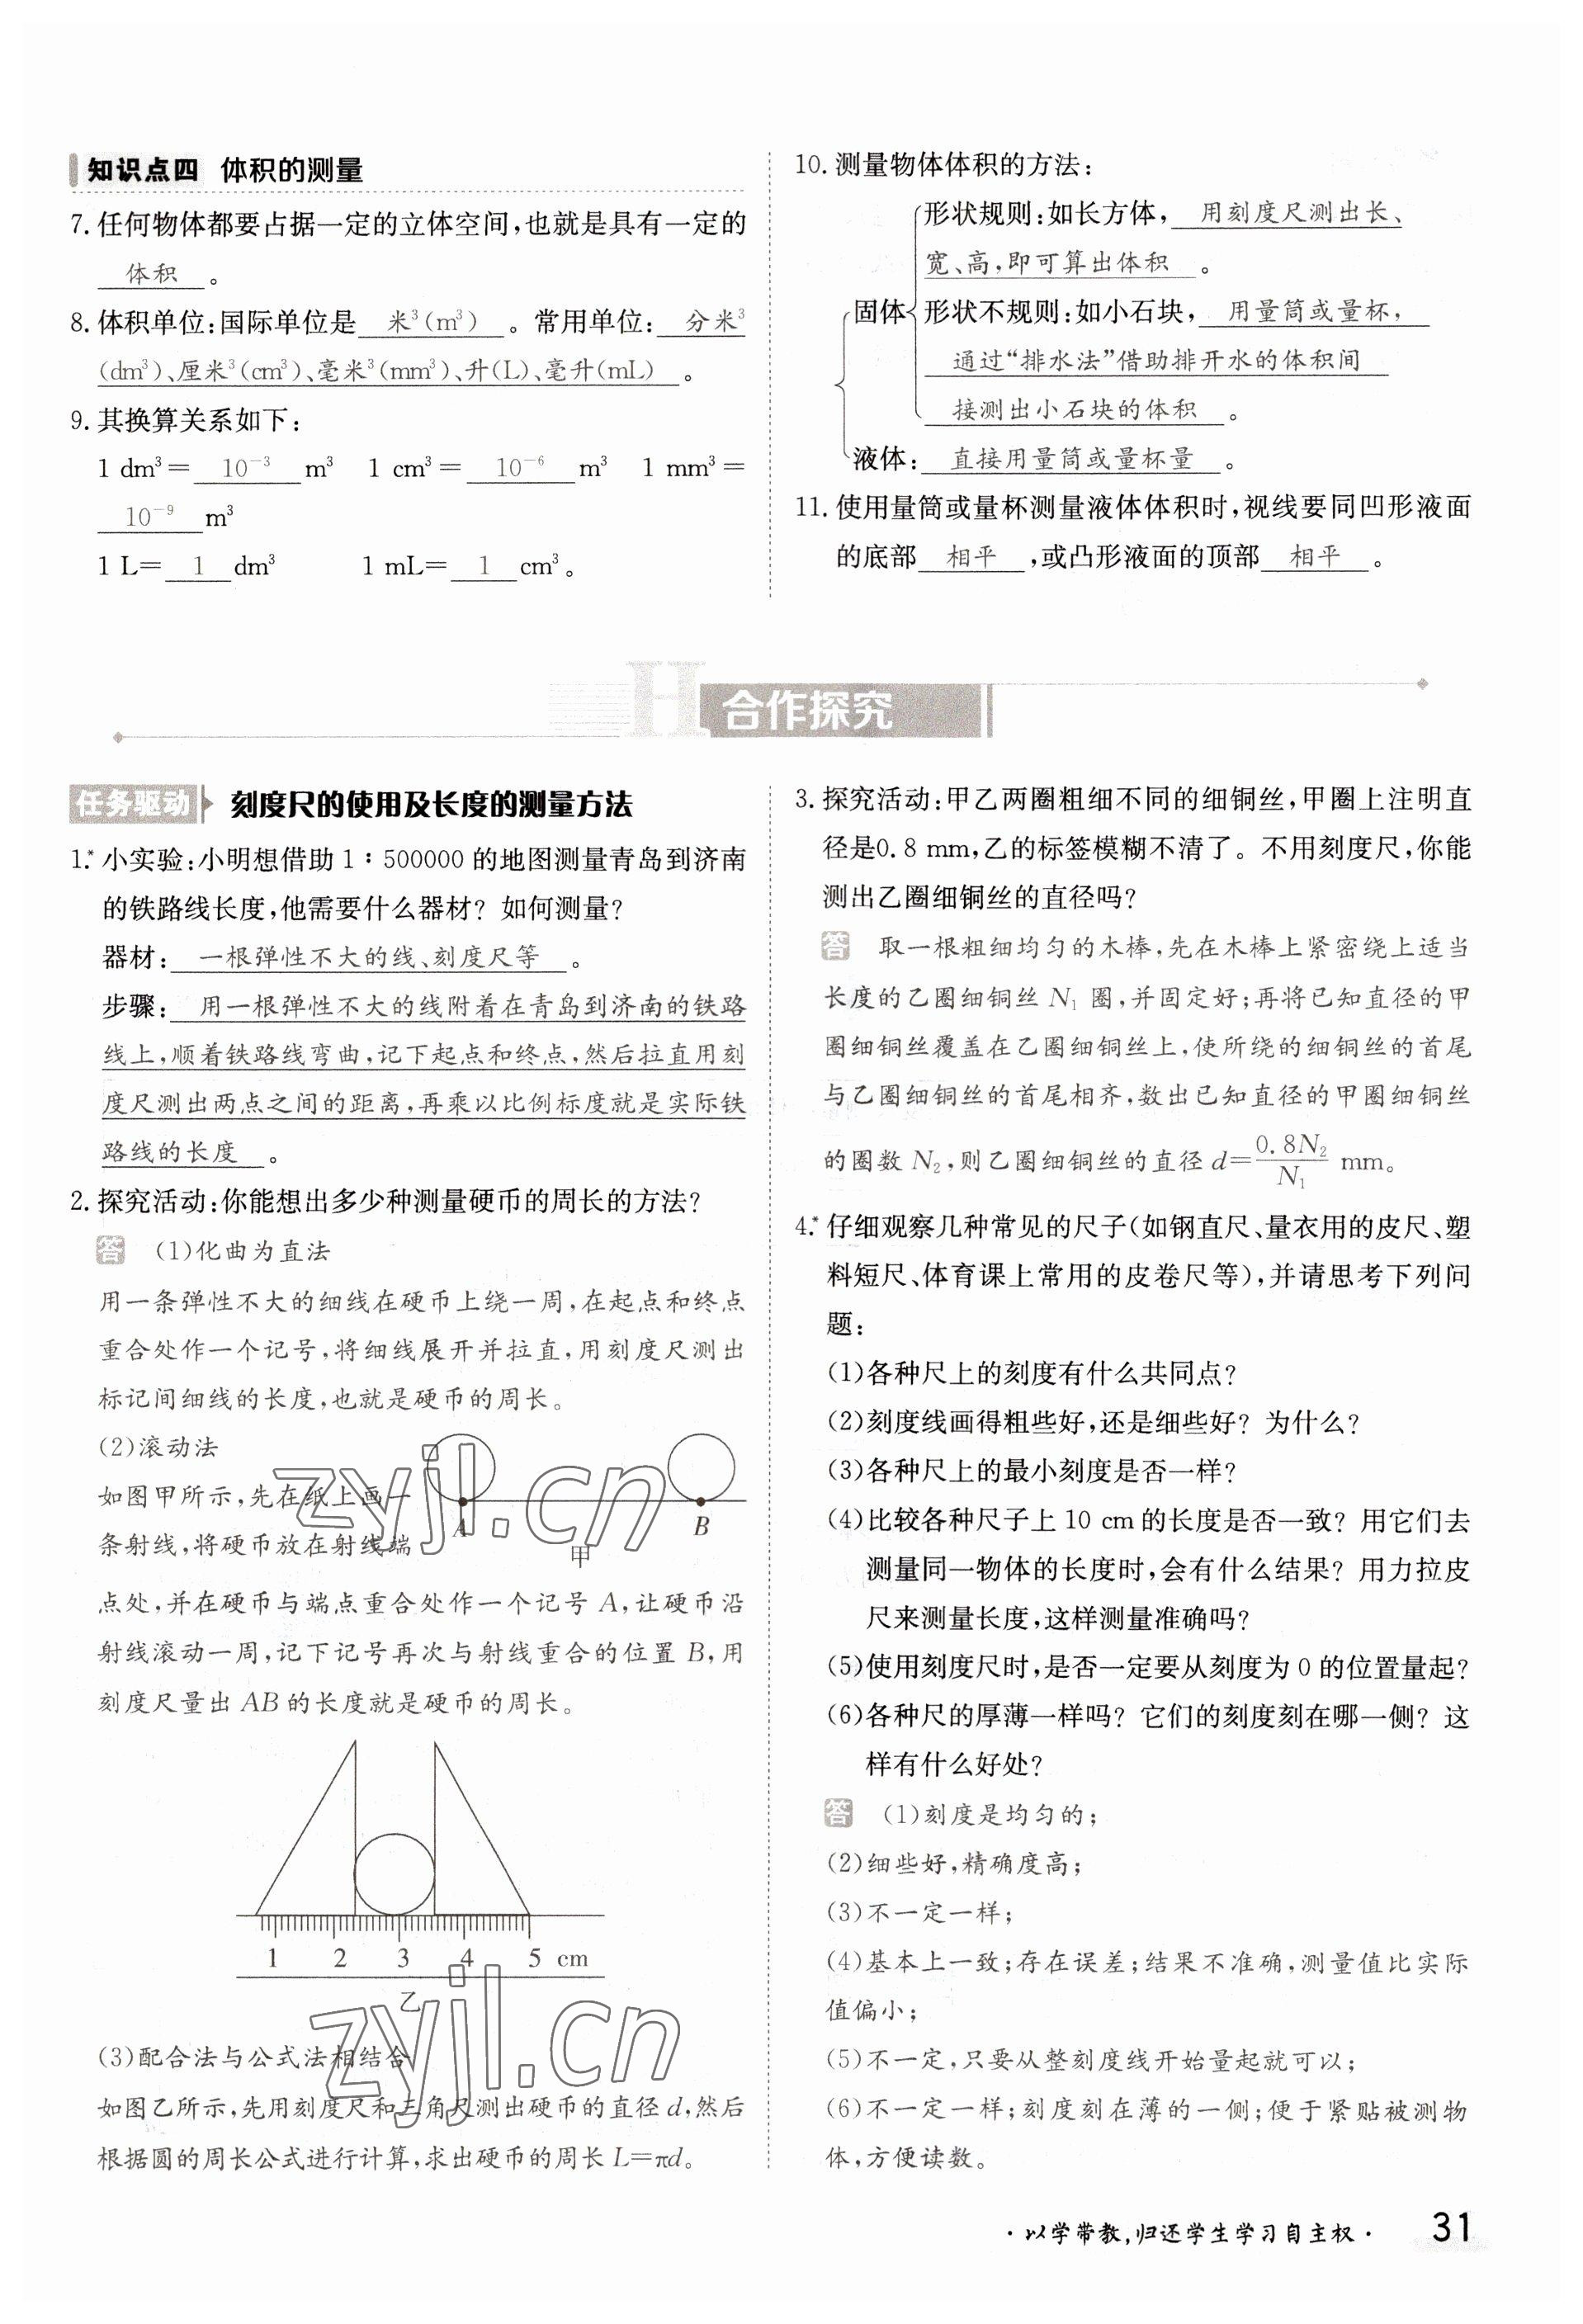 知识点四 体积的测量
7. 任何物体都要占据一定的立体空间,也就是具有一定的
体积。
8. 体积单位:国际单位是 米³(m³)。常用单位: 分米³
(dm³)、厘米³(cm³)、毫米³(mm³)、升(L)、毫升(mL)。
9. 其换算关系如下:
1 dm³= 10⁻³ m³ 1 cm³= 10⁻⁶ m³ 1 mm³=
10⁻⁹ m³
1 L= 1 dm³ 1 mL= 1 cm³。
10. 测量物体体积的方法:
形状规则:如长方体, 用刻度尺测出长、
宽、高,即可算出体积。
固体 形状不规则:如小石块, 用量筒或量杯,
通过“排水法”借助排开水的体积间
接测出小石块的体积。
液体: 直接用量筒或量杯量。
11. 使用量筒或量杯测量液体体积时,视线要同凹形液面
的底部 相平,或凸形液面的顶部 相平。
H 合作探究
任务驱动 刻度尺的使用及长度的测量方法
1.* 小实验:小明想借助 1∶500000 的地图测量青岛到济南
的铁路线长度,他需要什么器材? 如何测量?
器材: 一根弹性不大的线、刻度尺等。
步骤: 用一根弹性不大的线附着在青岛到济南的铁路
线上,顺着铁路线弯曲,记下起点和终点,然后拉直用刻
度尺测出两点之间的距离,再乘以比例标度就是实际铁
路线的长度。
2. 探究活动:你能想出多少种测量硬币的周长的方法?
答 (1)化曲为直法
用一条弹性不大的细线在硬币上绕一周,在起点和终点
重合处作一个记号,将细线展开并拉直,用刻度尺测出
标记间细线的长度,也就是硬币的周长。
(2)滚动法
如图甲所示,先在纸上画一
条射线,将硬币放在射线端
A B
甲
点处,并在硬币与端点重合处作一个记号 A,让硬币沿
射线滚动一周,记下记号再次与射线重合的位置 B,用
刻度尺量出 AB 的长度就是硬币的周长。
1 2 3 4 5 cm
乙
(3)配合法与公式法相结合
如图乙所示,先用刻度尺和三角尺测出硬币的直径 d,然后
根据圆的周长公式进行计算,求出硬币的周长 L=πd。
3. 探究活动:甲乙两圈粗细不同的细铜丝,甲圈上注明直
径是0.8 mm,乙的标签模糊不清了。不用刻度尺,你能
测出乙圈细铜丝的直径吗?
答 取一根粗细均匀的木棒,先在木棒上紧密绕上适当
长度的乙圈细铜丝 N₁ 圈,并固定好;再将已知直径的甲
圈细铜丝覆盖在乙圈细铜丝上,使所绕的细铜丝的首尾
与乙圈细铜丝的首尾相齐,数出已知直径的甲圈细铜丝
的圈数 N₂,则乙圈细铜丝的直径 d=0.8N₂/N₁ mm。
4.* 仔细观察几种常见的尺子(如钢直尺、量衣用的皮尺、塑
料短尺、体育课上常用的皮卷尺等),并请思考下列问
题:
(1)各种尺上的刻度有什么共同点?
(2)刻度线画得粗些好,还是细些好? 为什么?
(3)各种尺上的最小刻度是否一样?
(4)比较各种尺子上 10 cm 的长度是否一致? 用它们去
测量同一物体的长度时,会有什么结果? 用力拉皮
尺来测量长度,这样测量准确吗?
(5)使用刻度尺时,是否一定要从刻度为 0 的位置量起?
(6)各种尺的厚薄一样吗? 它们的刻度刻在哪一侧? 这
样有什么好处?
答 (1)刻度是均匀的;
(2)细些好,精确度高;
(3)不一定一样;
(4)基本上一致;存在误差;结果不准确,测量值比实际
值偏小;
(5)不一定,只要从整刻度线开始量起就可以;
(6)不一定一样;刻度刻在薄的一侧;便于紧贴被测物
体,方便读数。
·以学带教,归还学生学习自主权· 31
zyjl.cn
zyjl.cn